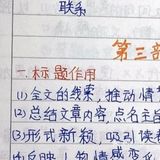 联系
第三部
一.标题作用
(1)全文的线索,推动情
(2)总结文章内容,点名主
(3)形式新颖,吸引读